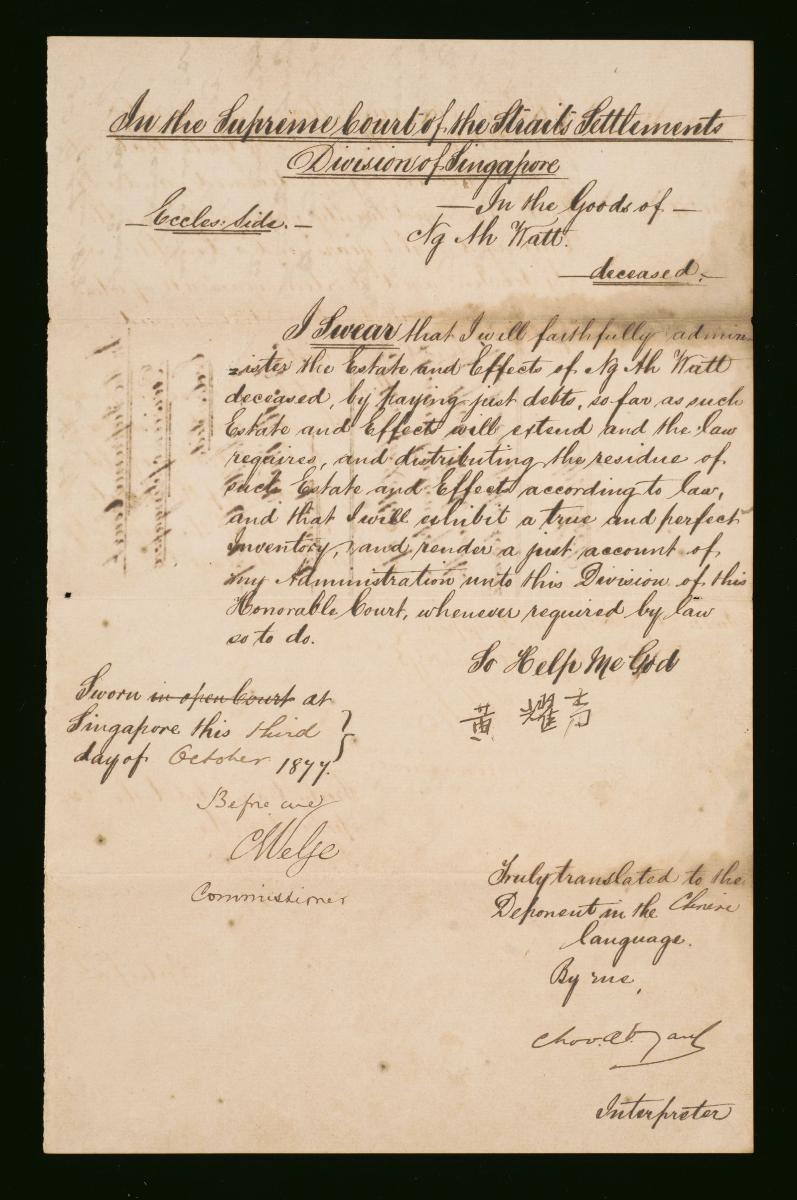 In the Supreme Court of the Straits Settlements
Division of Singapore
Eccles: Side.
— In the Goods of —
Ng Ah Watt.
— deceased. —
I Swear that I will faithfully admin
=ister the Estate and Effects of Ng Ah Watt
deceased, by paying just debts, so far as such
Estate and Effects will extend and the law
requires, and distributing the residue of
such Estate and Effects according to law,
and that I will exhibit a true and perfect
Inventory, and render a just account of
my Administration unto this Division of this
Honorable Court, whenever required by law
so to do.
So Help Me God
黃 耀 青
Sworn in open Court at
Singapore this third
day of October 1877.
Before me
Commissioner
Truly translated to the
Deponent in the Chinese
language.
By me,
Interpreter